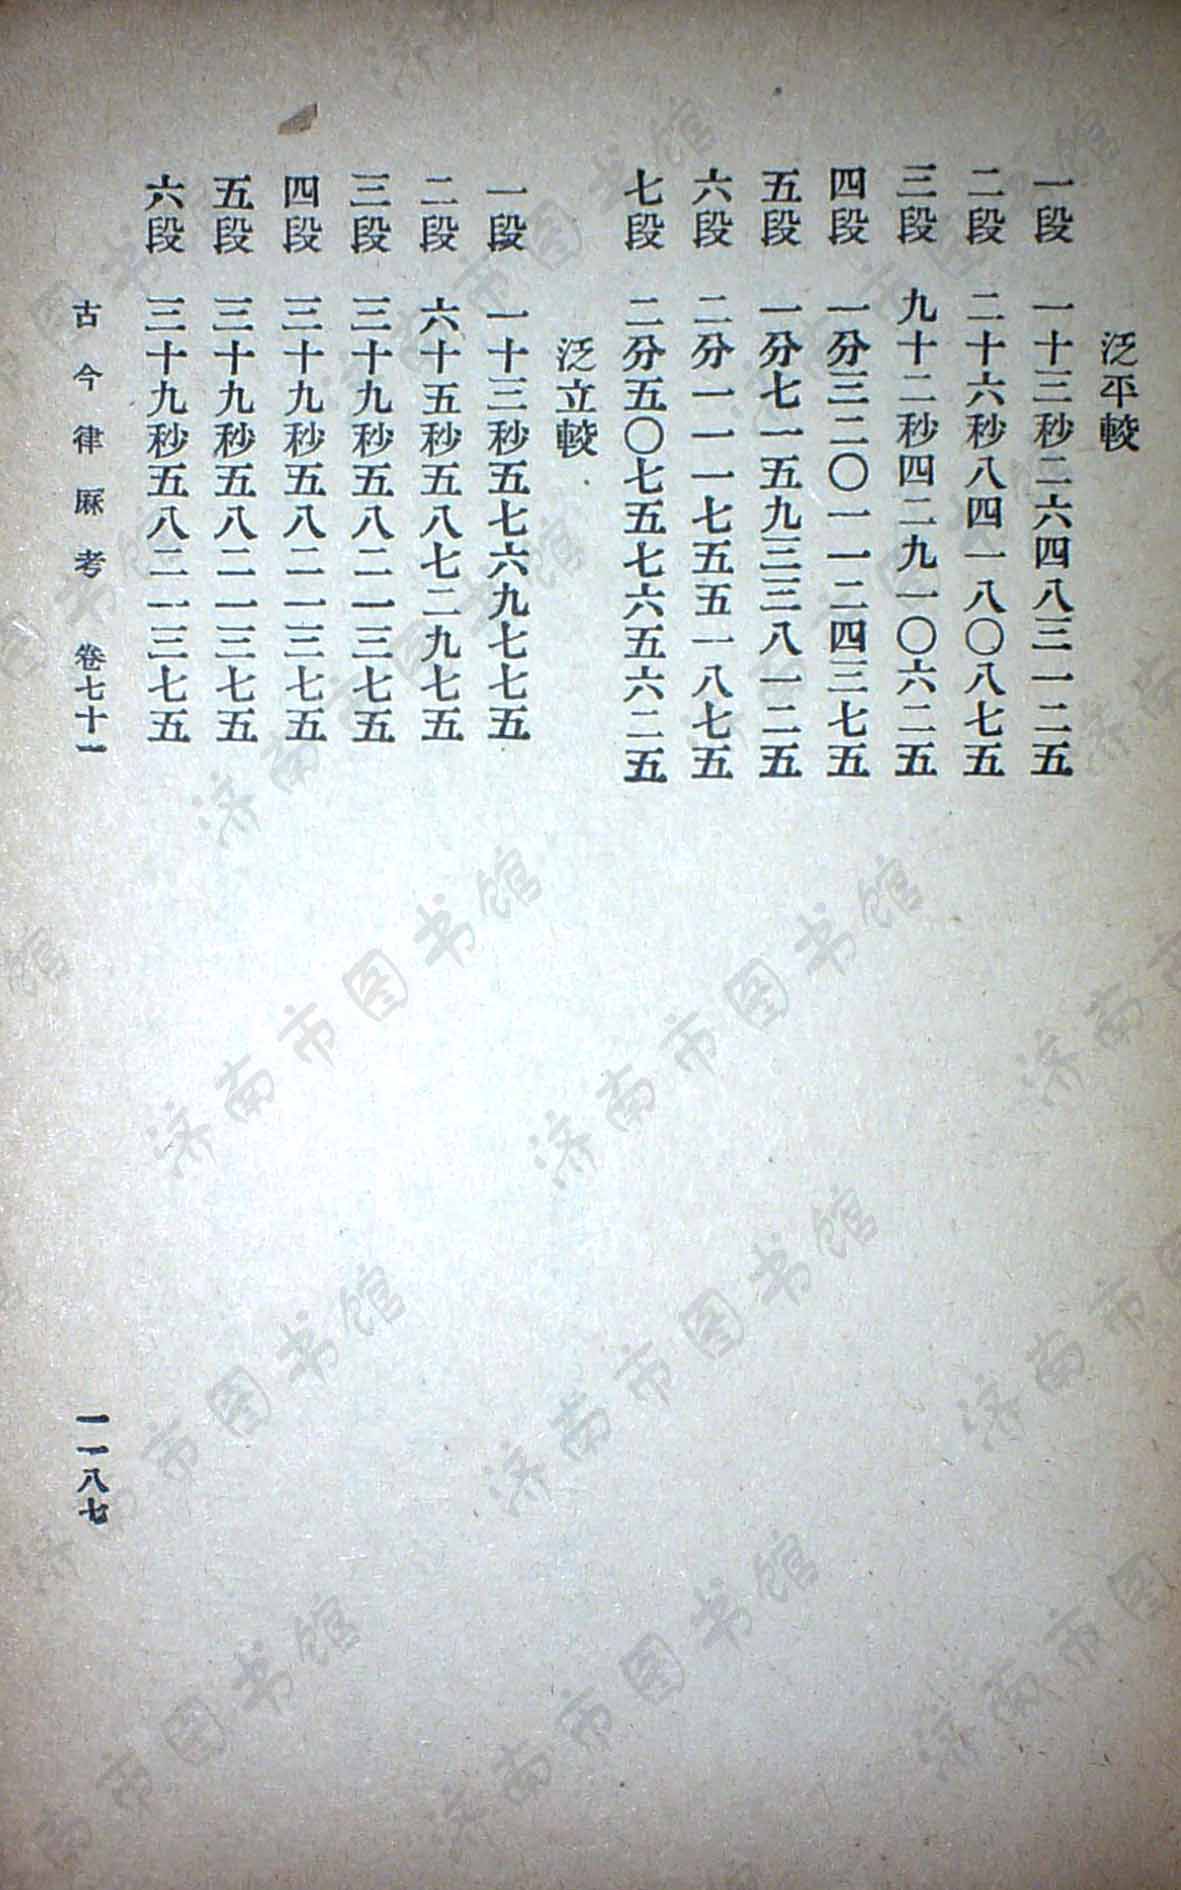 泛平較
一段　一十三秒二六四八三一二五
二段　二十六秒八四一八〇八七五
三段　九十二秒四二九一〇六二五
四段　一分三二〇一一二四三七五
五段　一分七一五九三三八一二五
六段　二分一一一七五五一八七五
七段　二分五〇七五七六五六二五
泛立較
一段　一十三秒五七六九七七五
二段　六十五秒五八七二九七五
三段　三十九秒五八二一三七五
四段　三十九秒五八二一三七五
五段　三十九秒五八二一三七五
六段　三十九秒五八二一三七五
古今律厤考　卷七十一　一一八七
济南市图书馆